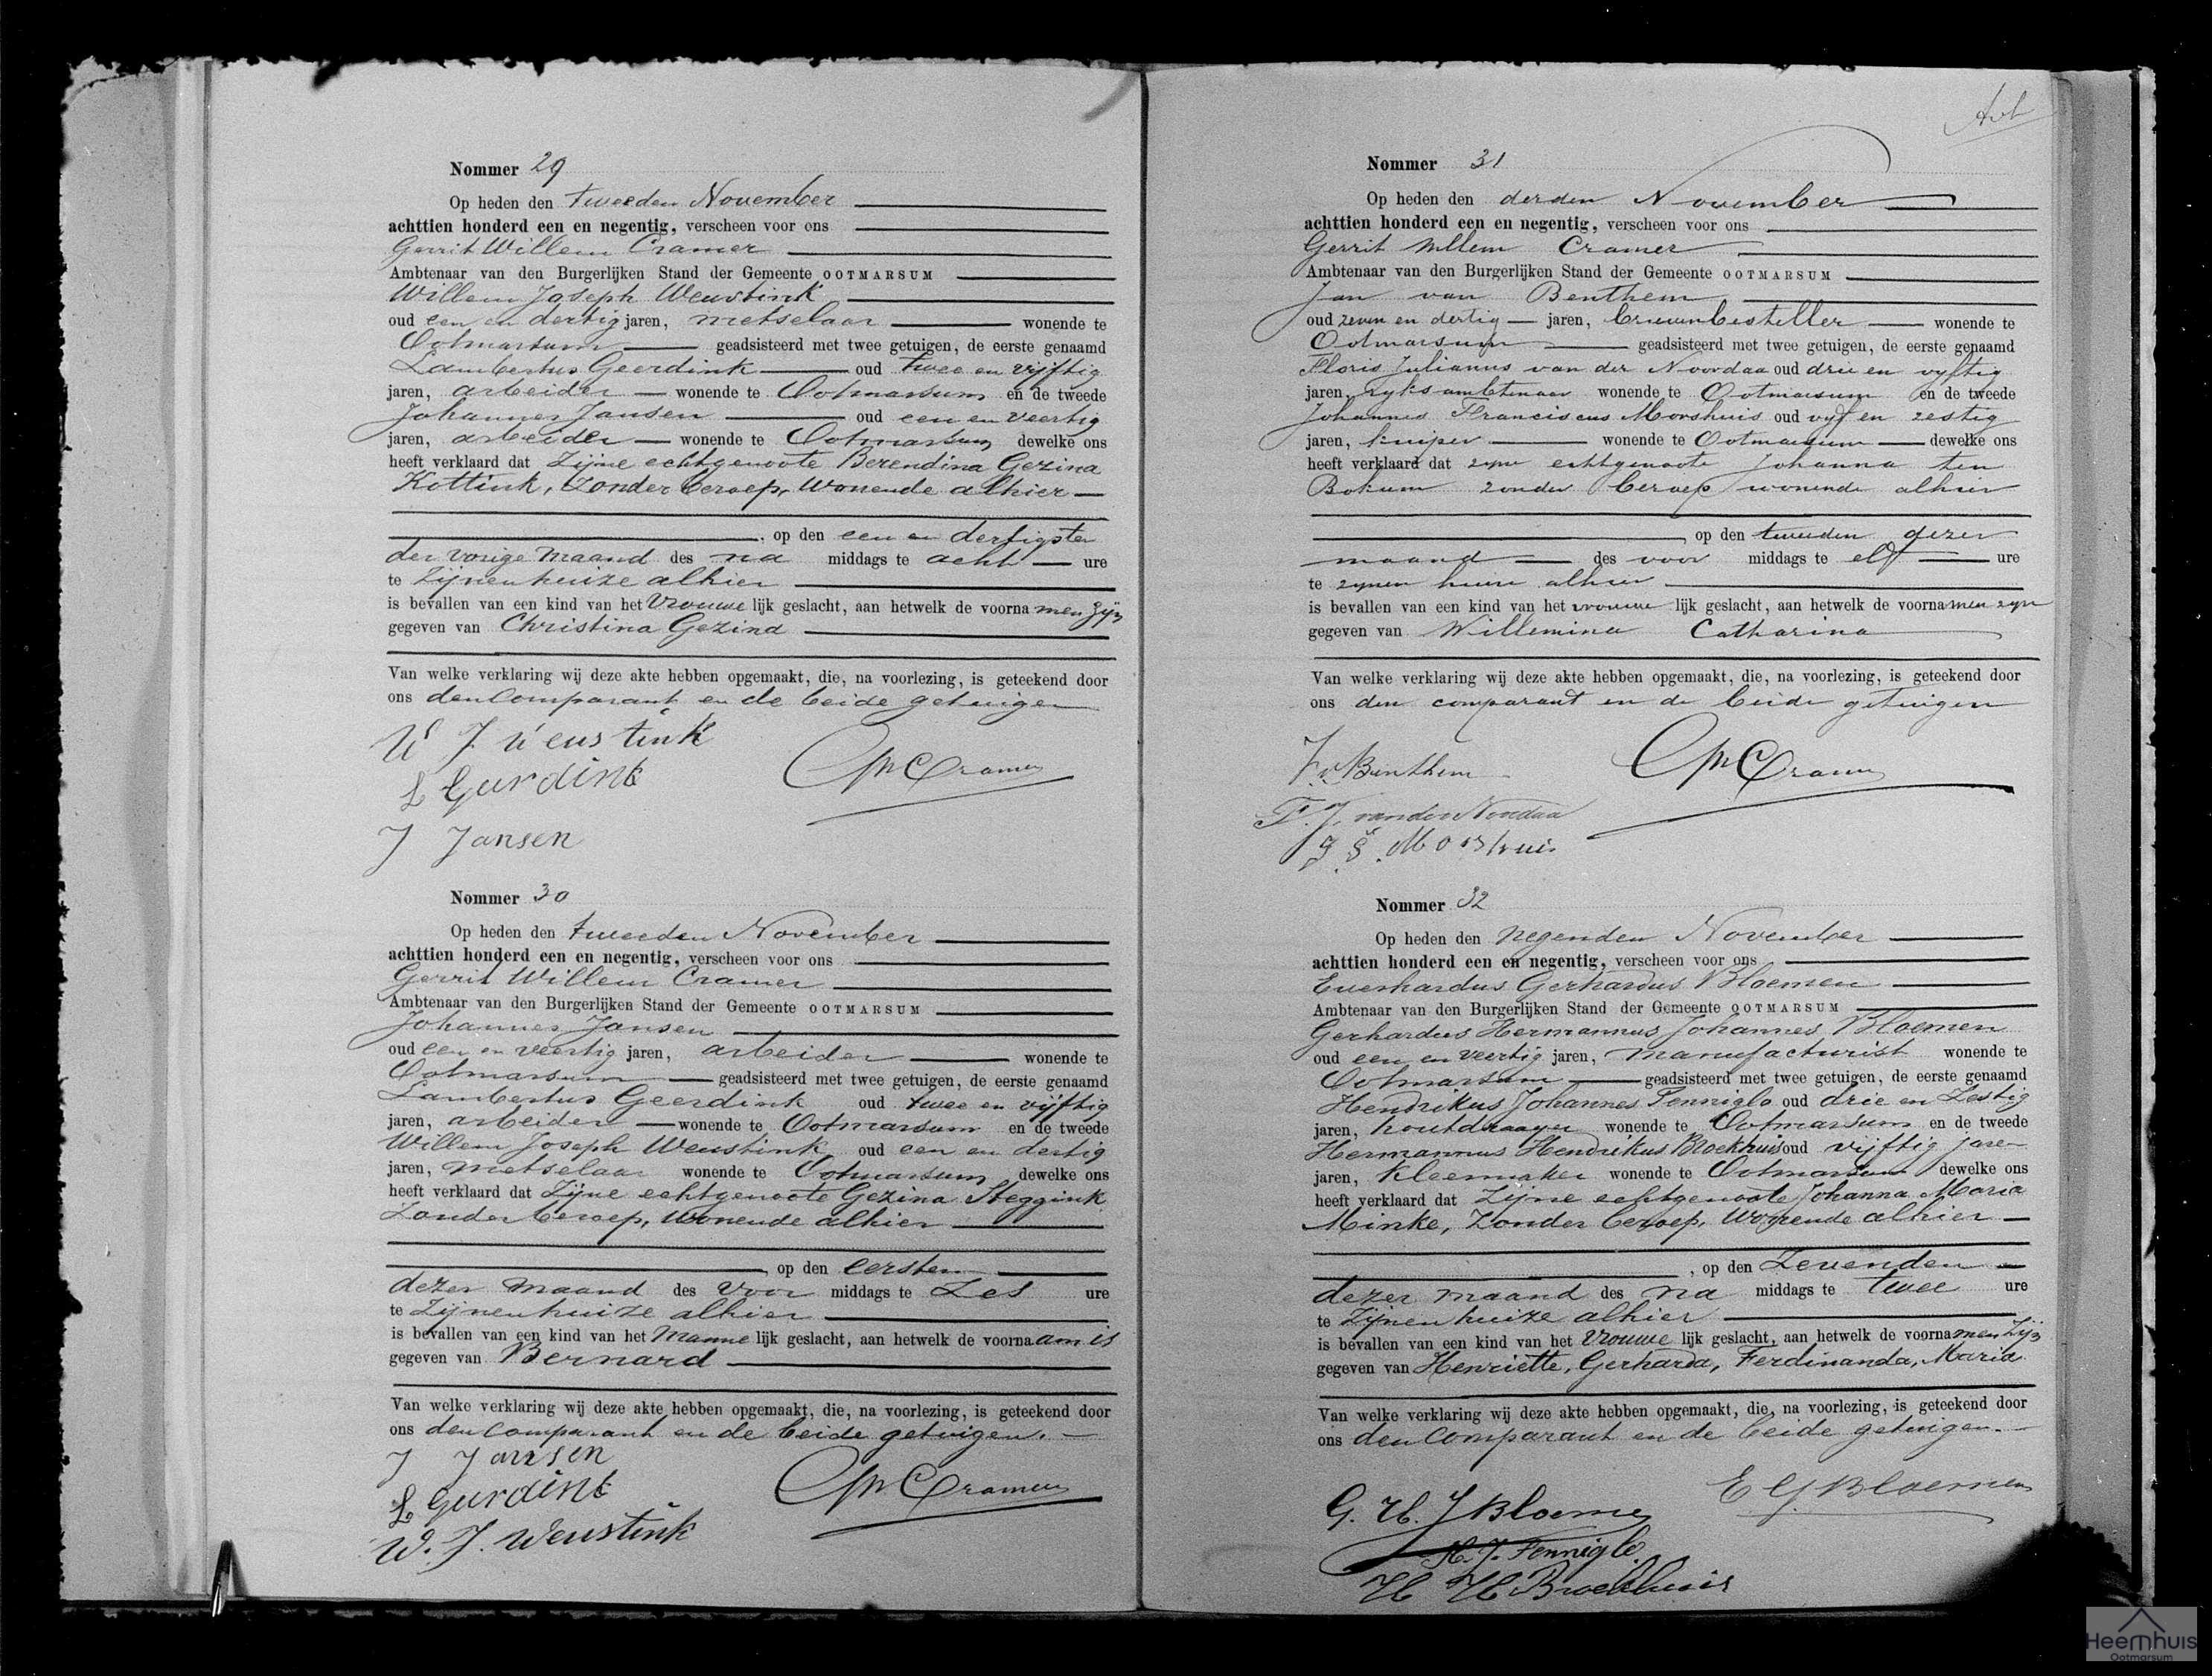 Nommer 29
Op heden den tweeden November
achttien honderd een en negentig, verscheen voor ons
Gerrit Willem Cramer
Ambtenaar van den Burgerlijken Stand der Gemeente OOTMARSUM
Willem Joseph Weustink
oud een en dertig jaren, metselaar wonende te
Ootmarsum geadsisteerd met twee getuigen, de eerste genaamd
Lambertus Geerdink oud twee en vijftig
jaren, arbeider wonende te Ootmarsum en de tweede
Johannes Jansen oud een en veertig
jaren, arbeider wonende te Ootmarsum dewelke ons
heeft verklaard dat Zijne echtgenoote Berendina Gezina
Kottink, Zonder beroep, Wonende alhier
, op den een en dertigsten
der vorige maand des na middags te acht ure
te Zijnen huize alhier
is bevallen van een kind van het Vrouwe lijk geslacht, aan hetwelk de voorna men zijn
gegeven van Christina Gezina
Van welke verklaring wij deze akte hebben opgemaakt, die, na voorlezing, is geteekend door
ons den Comparant en de beide getuigen
W J Weustink
GW Cramer
L Gerdink
J Jansen
Nommer 30
Op heden den tweeden November
achttien honderd een en negentig, verscheen voor ons
Gerrit Willem Cramer
Ambtenaar van den Burgerlijken Stand der Gemeente OOTMARSUM
Johannes Jansen
oud een en veertig jaren, arbeider wonende te
Ootmarsum geadsisteerd met twee getuigen, de eerste genaamd
Lambertus Geerdink oud twee en vijftig
jaren, arbeider wonende te Ootmarsum en de tweede
Willem Joseph Weustink oud een en dertig
jaren, metselaar wonende te Ootmarsum dewelke ons
heeft verklaard dat Zijne echtgenoote Gezina Steggink
Zonder beroep, Wonende alhier
, op den eersten
dezer maand des Voor middags te Zes ure
te Zijnen huize alhier
is bevallen van een kind van het Manne lijk geslacht, aan hetwelk de voorna am is
gegeven van Bernard
Van welke verklaring wij deze akte hebben opgemaakt, die, na voorlezing, is geteekend door
ons den Comparant en de beide getuigen.
J Jansen
L Gerdink
GW Cramer
W. J. Weustink
Nommer 31
Op heden den derden November
achttien honderd een en negentig, verscheen voor ons
Gerrit Willem Cramer
Ambtenaar van den Burgerlijken Stand der Gemeente OOTMARSUM
Jan van Benthem
oud zeven en dertig jaren, brievenbesteller wonende te
Ootmarsum geadsisteerd met twee getuigen, de eerste genaamd
Floris Julianus van der Noordaa oud drie en vyftig
jaren, ryksambtenaar wonende te Ootmarsum en de tweede
Johannes Franciscus Morshuis oud vyf en zestig
jaren, kuiper wonende te Ootmarsum dewelke ons
heeft verklaard dat zyne echtgenoote Johanna ten
Bokum zonder beroep wonende alhier
, op den tweeden dezer
maand des voor middags te elf ure
te zynen huize alhier
is bevallen van een kind van het vrouwe lijk geslacht, aan hetwelk de voorna men zyn
gegeven van Willemina Catharina
Van welke verklaring wij deze akte hebben opgemaakt, die, na voorlezing, is geteekend door
ons den comparant en de beide getuigen
J. v. Benthem
GW Cramer
F. J. van der Noordaa
J F. Morshuis
Nommer 32
Op heden den negenden November
achttien honderd een en negentig, verscheen voor ons
Everhardus Gerhardus Bloemen
Ambtenaar van den Burgerlijken Stand der Gemeente OOTMARSUM
Gerhardus Hermannus Johannes Bloemen
oud een en veertig jaren, manufacturist wonende te
Ootmarsum geadsisteerd met twee getuigen, de eerste genaamd
Hendrikus Johannes Fenniglo oud drie en Zestig
jaren, houtdraayer wonende te Ootmarsum en de tweede
Hermannus Hendrikus Broekhuis oud vijftig jaren
jaren, Kleermaker wonende te Ootmarsum dewelke ons
heeft verklaard dat Zijne echtgenoote Johanna Maria
Minke, Zonder beroep, Wonende alhier
, op den Zevenden
dezer maand des na middags te twee ure
te Zijnen huize alhier
is bevallen van een kind van het Vrouwe lijk geslacht, aan hetwelk de voorna men zijn
gegeven van Henriette, Gerharda, Ferdinanda, Maria
Van welke verklaring wij deze akte hebben opgemaakt, die, na voorlezing, is geteekend door
ons den Comparant en de beide getuigen.
E G Bloemen
G. H. J Bloemen
H. J. Fenniglo
H H Broekhuis
Heemhuis
Ootmarsum